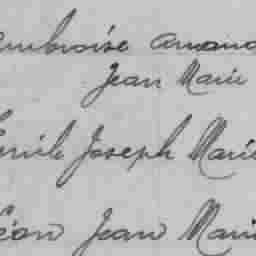 Ambroise Amand
Jean Marie
Emile Joseph Marie
Léon Jean Marie